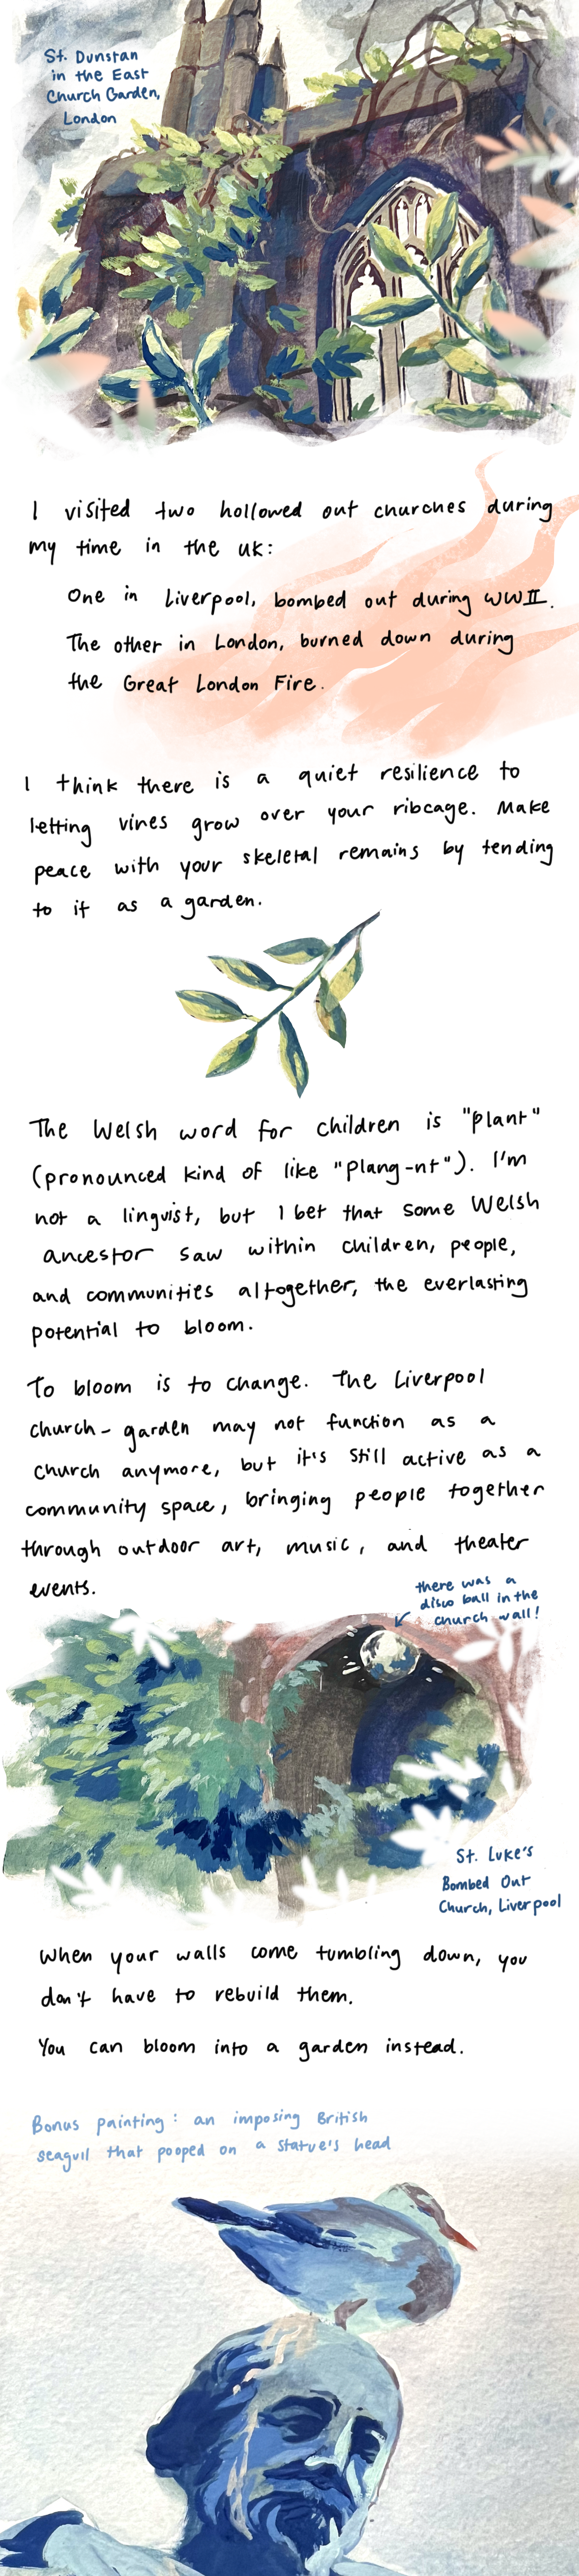 St. Dunstan
in the East
Church Garden,
London
I visited two hollowed out churches during
my time in the UK:
One in Liverpool, bombed out during WWII.
The other in London, burned down during
the Great London Fire.
I think there is a quiet resilience to
letting vines grow over your ribcage. Make
peace with your skeletal remains by tending
to it as a garden.
The Welsh word for children is "plant"
(pronounced kind of like "plang-nt"). I'm
not a linguist, but I bet that some Welsh
ancestor saw within children, people,
and communities altogether, the everlasting
potential to bloom.
To bloom is to change. The Liverpool
church-garden may not function as a
church anymore, but it's still active as a
community space, bringing people together
through outdoor art, music, and theater
events.
there was a
disco ball in the
church wall!
St. Luke's
Bombed Out
Church, Liverpool
When your walls come tumbling down, you
don't have to rebuild them.
You can bloom into a garden instead.
Bonus painting: an imposing British
seagull that pooped on a statue's head